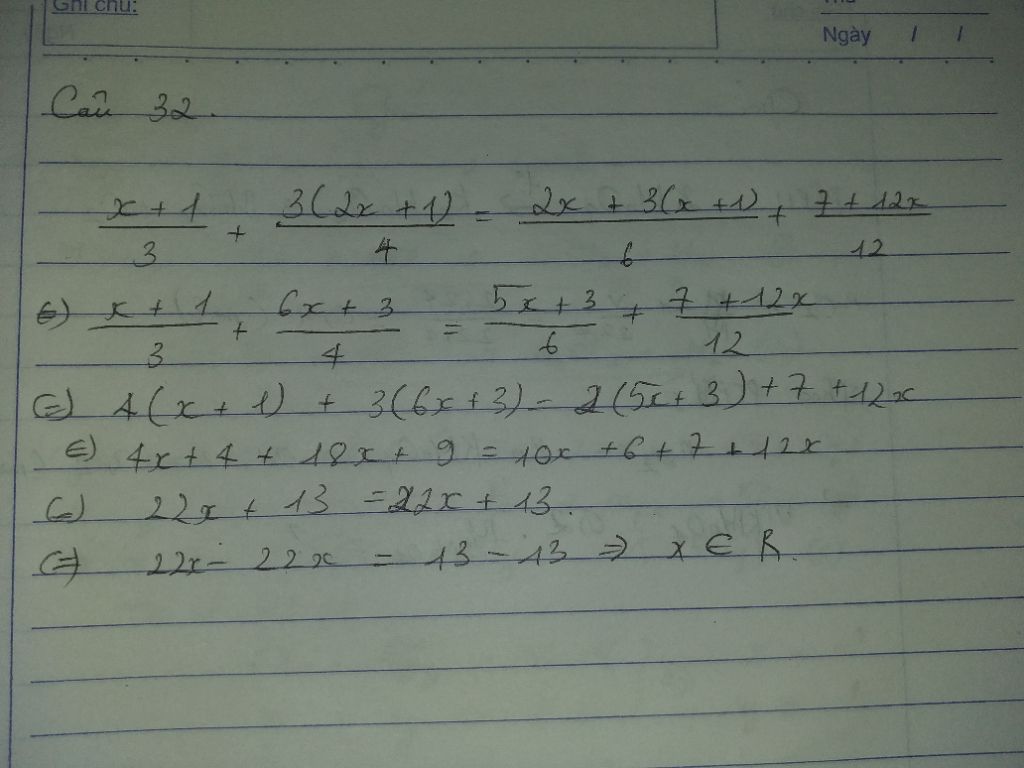 Ghi chú:
Ngày / /
Câu 32.
x + 1 / 3 + 3(2x + 1) / 4 = 2x + 3(x + 1) / 6 + 7 + 12x / 12
⇔) x + 1 / 3 + 6x + 3 / 4 = 5x + 3 / 6 + 7 + 12x / 12
⇔) 4(x + 1) + 3(6x + 3) = 2(5x + 3) + 7 + 12x
⇔) 4x + 4 + 18x + 9 = 10x + 6 + 7 + 12x
⇔) 22x + 13 = 22x + 13.
⇔) 22x - 22x = 13 - 13 ⇒ x ∈ R.